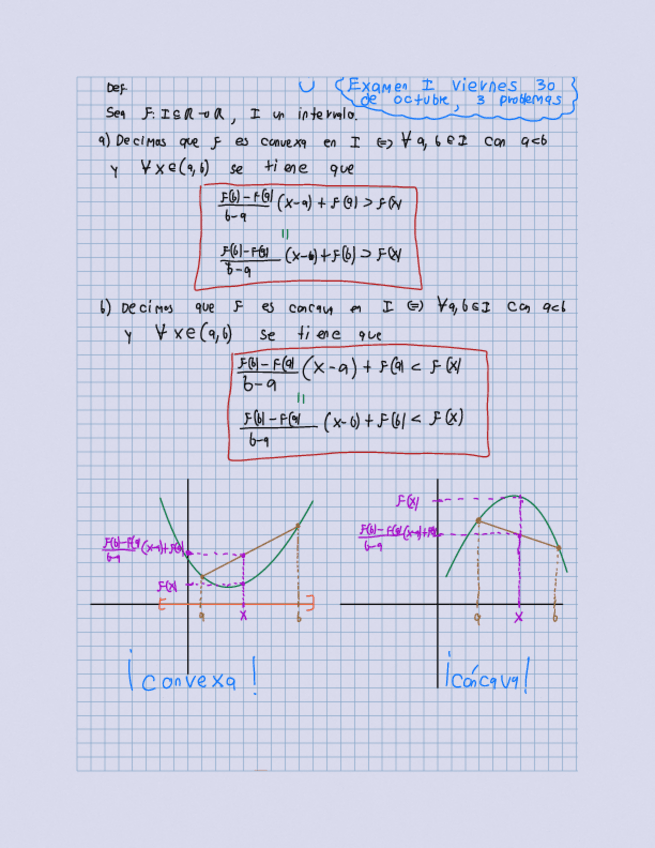 Def.
U
Examen I viernes 30
de octubre, 3 problemas
Sea f: I ⊆ R → R, I un intervalo.
a) Decimos que f es convexa en I ⟺ ∀ a, b ∈ I con a<b
y ∀ x ∈ (a, b) se tiene que
f(b) - f(a)/b-a (x-a) + f(a) > f(x)
=
f(b) - f(a)/b-a (x-b) + f(b) > f(x)
b) Decimos que f es concava en I ⟺ ∀ a, b ∈ I con a<b
y ∀ x ∈ (a, b) se tiene que
f(b) - f(a)/b-a (x-a) + f(a) < f(x)
=
f(b) - f(a)/b-a (x-b) + f(b) < f(x)
f(b)-f(a)/b-a (x-a)+f(a)
f(x)
a x b
¡convexa!
f(x)
f(b)-f(a)/b-a (x-a)+f(a)
a x b
¡cóncava!